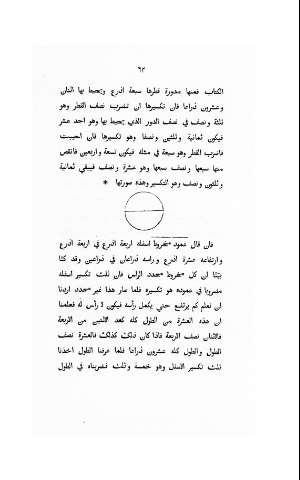 ٦٣
الكتاب فمنها مدورة قطرها سبعة اذرع ويحيط بها اثنان
وعشرون ذراعا فان تكسيرها ان تضرب نصف القطر وهو
ثلثة ونصف في نصف الدور الذي يحيط بها وهو احد عشر
فيكون ثمانية وثلثين ونصفا وهو تكسيرها فان احببت
فاضرب القطر وهو سبعة في مثله فيكون تسعة واربعين فانقص
منها سبعها ونصف سبعها وهو عشرة ونصف فيبقي ثمانية
وثلثون ونصف وهو التكسير وهذه صورتها *
فان قال عمود مخروط اسفله اربعة اذرع في اربعة اذرع
وارتفاعه عشرة اذرع وراسه ذراعان في ذراعين وقد كنا
بيّنا ان كل مخروط محدد الراس فان ثلث تكسير اسفله
مضروبا في عموده هو تكسيره فلما صار هذا غير محدد اردنا
ان نعلم كم يرتفع حتي يكمل رأسه فيكون لا رأس له فعلمنا
ان هذه العشرة من الطول كله كقد الاثنين من الاربعة
فالاثنان نصف الاربعة فاذا كان ذلك كذلك فالعشرة نصف
الطول والطول كله عشرون ذراعا فلما عرفنا الطول اخذنا
ثلث تكسير الاسفل وهو خمسة وثلث فضربناه في الطول